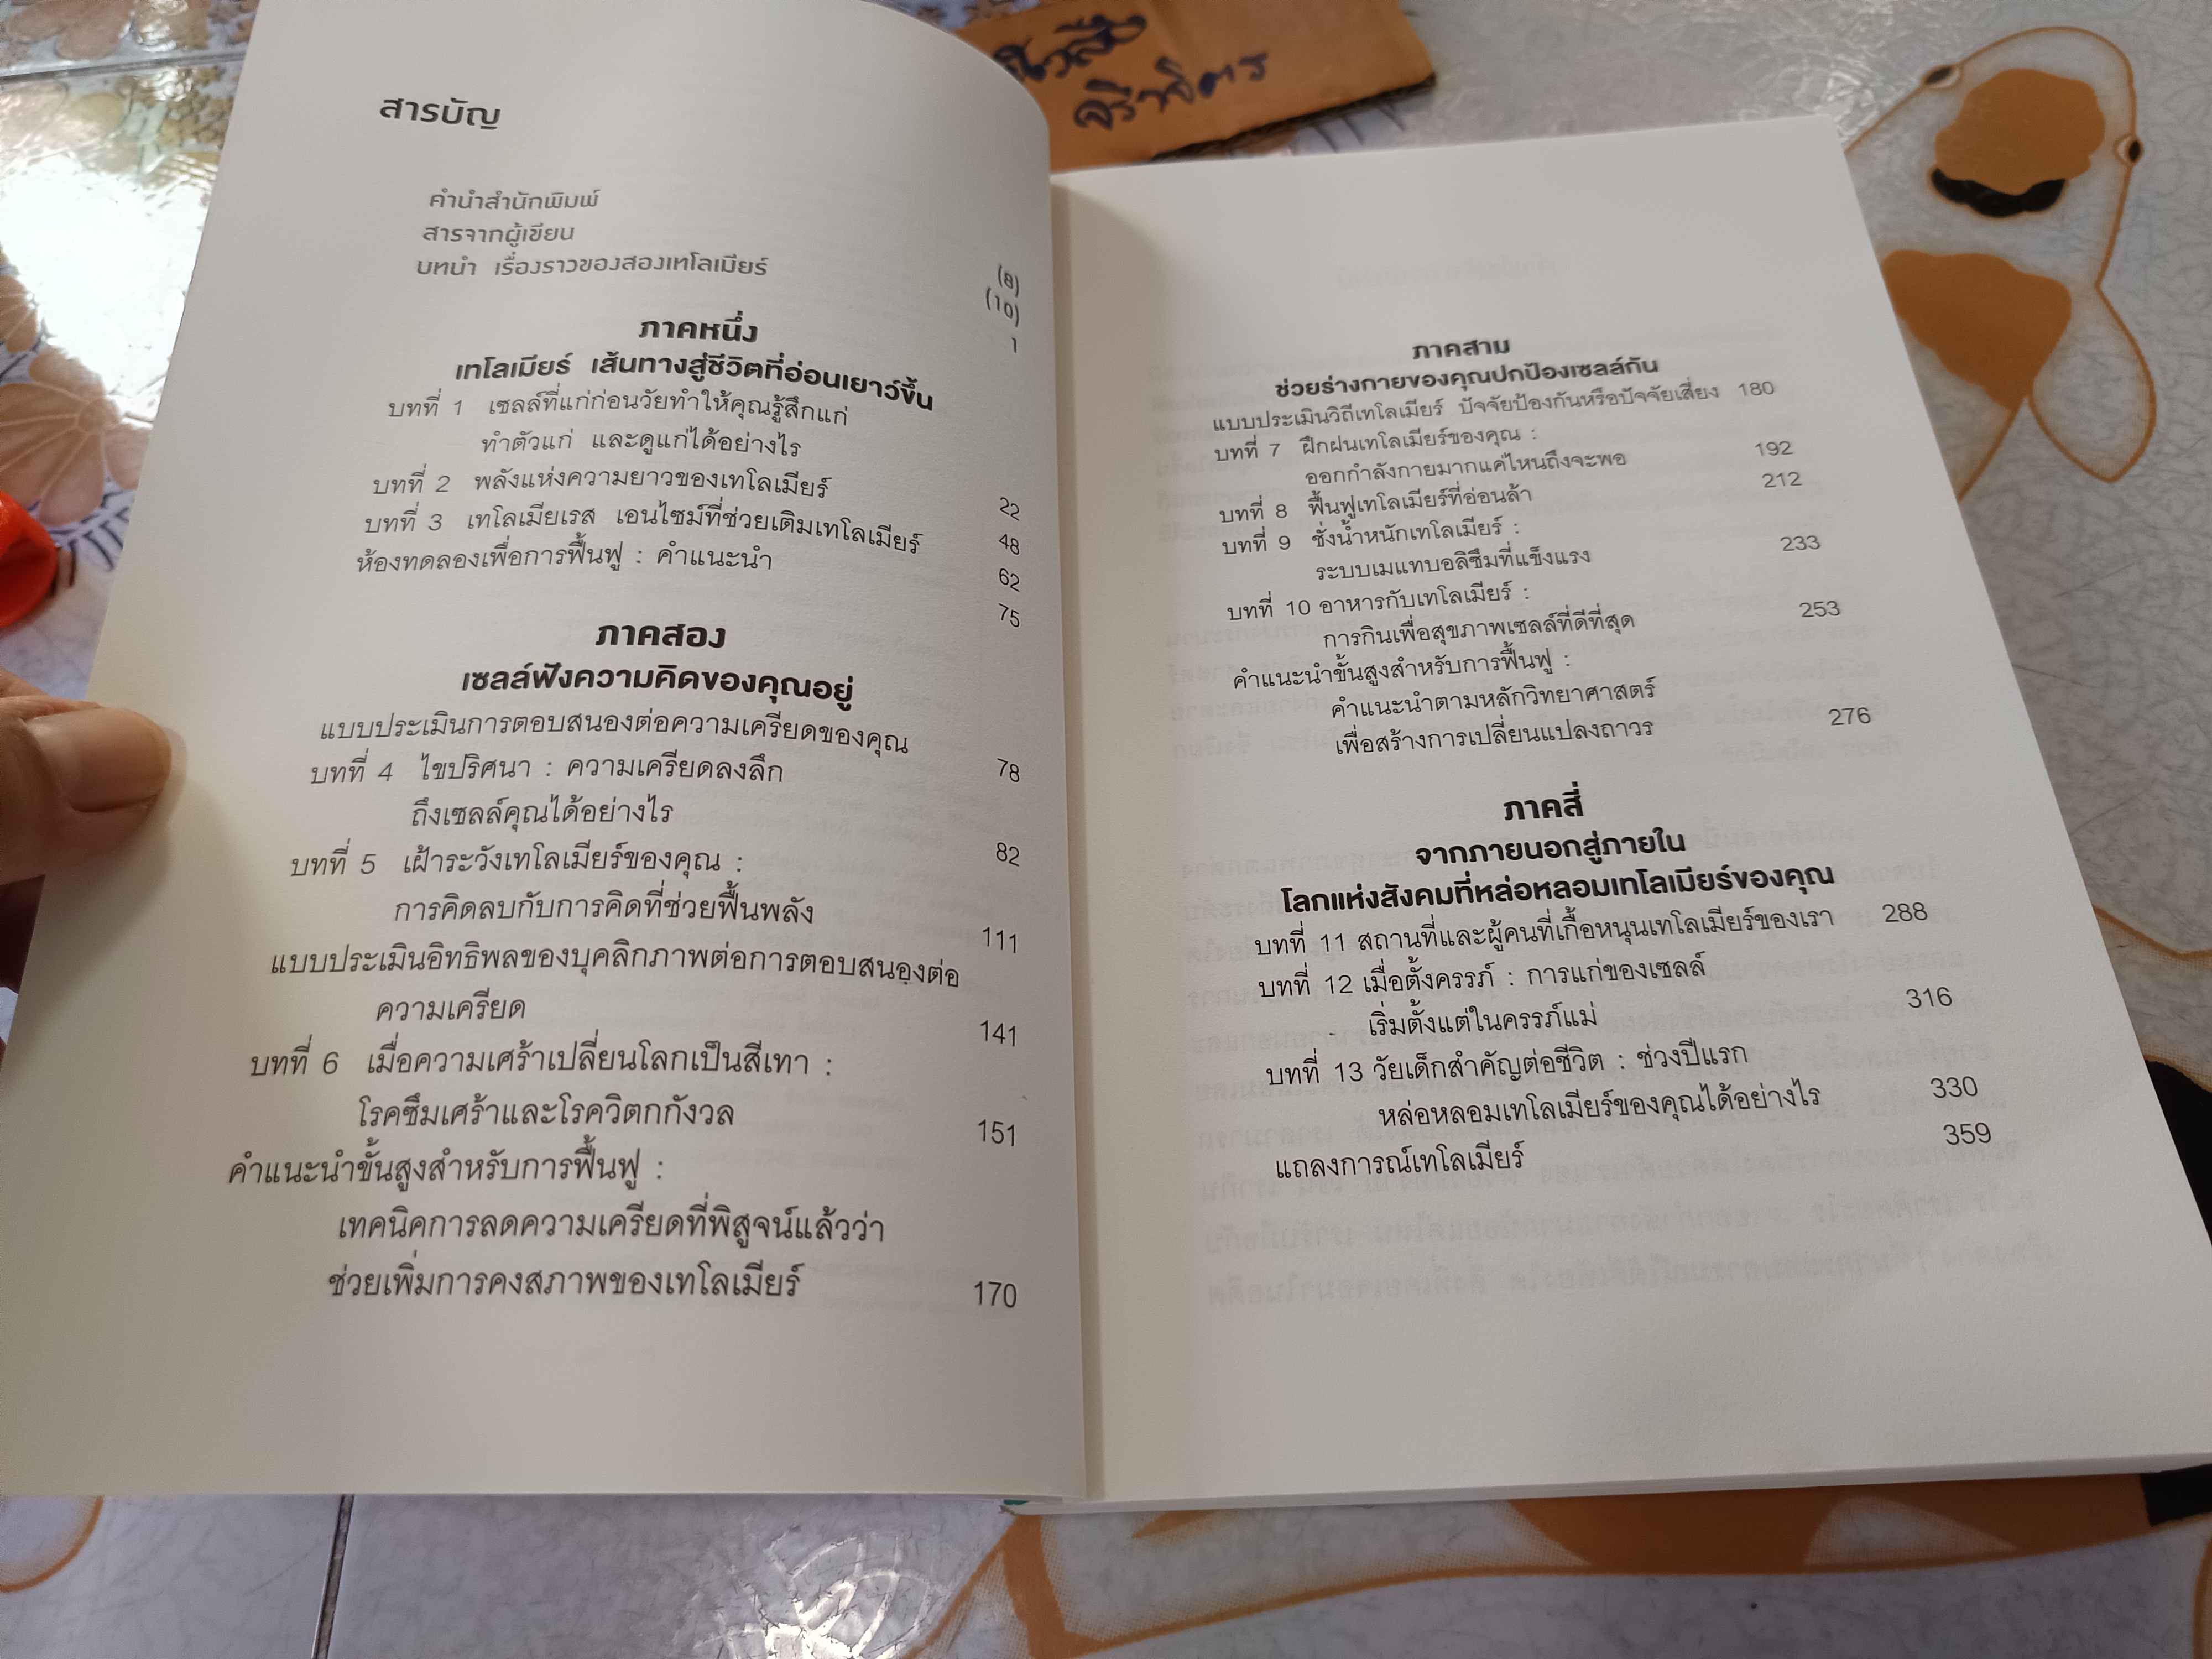 สารบัญ
คำนำสำนักพิมพ์ (8)
สารจากผู้เขียน (10)
บทนำ เรื่องราวของสองเทโลเมียร์ 1
ภาคหนึ่ง
เทโลเมียร์ เส้นทางสู่ชีวิตที่อ่อนเยาว์ขึ้น
บทที่ 1 เซลล์ที่แก่ก่อนวัยทำให้คุณรู้สึกแก่
ทำตัวแก่ และดูแก่ได้อย่างไร 22
บทที่ 2 พลังแห่งความยาวของเทโลเมียร์ 48
บทที่ 3 เทโลเมียเรส เอนไซม์ที่ช่วยเติมเทโลเมียร์ 62
ห้องทดลองเพื่อการฟื้นฟู : คำแนะนำ 75
ภาคสอง
เซลล์ฟังความคิดของคุณอยู่
แบบประเมินการตอบสนองต่อความเครียดของคุณ 78
บทที่ 4 ไขปริศนา : ความเครียดลงลึก
ถึงเซลล์คุณได้อย่างไร 82
บทที่ 5 เฝ้าระวังเทโลเมียร์ของคุณ :
การคิดลบกับการคิดที่ช่วยฟื้นพลัง 111
แบบประเมินอิทธิพลของบุคลิกภาพต่อการตอบสนองต่อ
ความเครียด 141
บทที่ 6 เมื่อความเศร้าเปลี่ยนโลกเป็นสีเทา :
โรคซึมเศร้าและโรควิตกกังวล 151
คำแนะนำขั้นสูงสำหรับการฟื้นฟู :
เทคนิคการลดความเครียดที่พิสูจน์แล้วว่า
ช่วยเพิ่มการคงสภาพของเทโลเมียร์ 170
ภาคสาม
ช่วยร่างกายของคุณปกป้องเซลล์กัน
แบบประเมินวิถีเทโลเมียร์ ปัจจัยป้องกันหรือปัจจัยเสี่ยง 180
บทที่ 7 ฝึกฝนเทโลเมียร์ของคุณ :
ออกกำลังกายมากแค่ไหนถึงจะพอ 192
บทที่ 8 ฟื้นฟูเทโลเมียร์ที่อ่อนล้า 212
บทที่ 9 ชั่งน้ำหนักเทโลเมียร์ :
ระบบเมแทบอลิซึมที่แข็งแรง 233
บทที่ 10 อาหารกับเทโลเมียร์ :
การกินเพื่อสุขภาพเซลล์ที่ดีที่สุด 253
คำแนะนำขั้นสูงสำหรับการฟื้นฟู :
คำแนะนำตามหลักวิทยาศาสตร์
เพื่อสร้างการเปลี่ยนแปลงถาวร 276
ภาคสี่
จากภายนอกสู่ภายใน
โลกแห่งสังคมที่หล่อหลอมเทโลเมียร์ของคุณ
บทที่ 11 สถานที่และผู้คนที่เกื้อหนุนเทโลเมียร์ของเรา 288
บทที่ 12 เมื่อตั้งครรภ์ : การแก่ของเซลล์
เริ่มตั้งแต่ในครรภ์แม่ 316
บทที่ 13 วัยเด็กสำคัญต่อชีวิต : ช่วงปีแรก
หล่อหลอมเทโลเมียร์ของคุณได้อย่างไร 330
แถลงการณ์เทโลเมียร์ 359